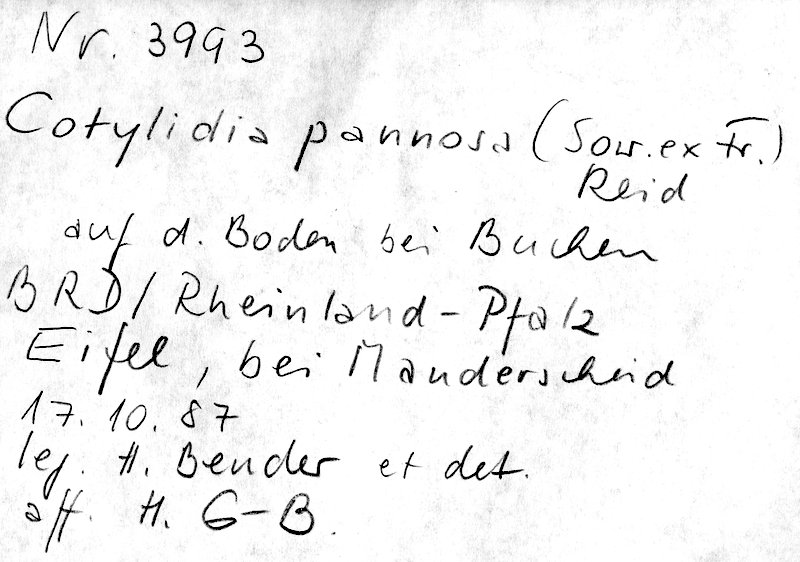 Nr. 3993
Cotylidia pannosa (Sow. ex Fr.)
Reid
auf d. Boden bei Buchen
BRD/Rheinland-Pfalz
Eifel, bei Manderscheid
17.10.87
leg. H. Bender et det.
aff. H. G-B.